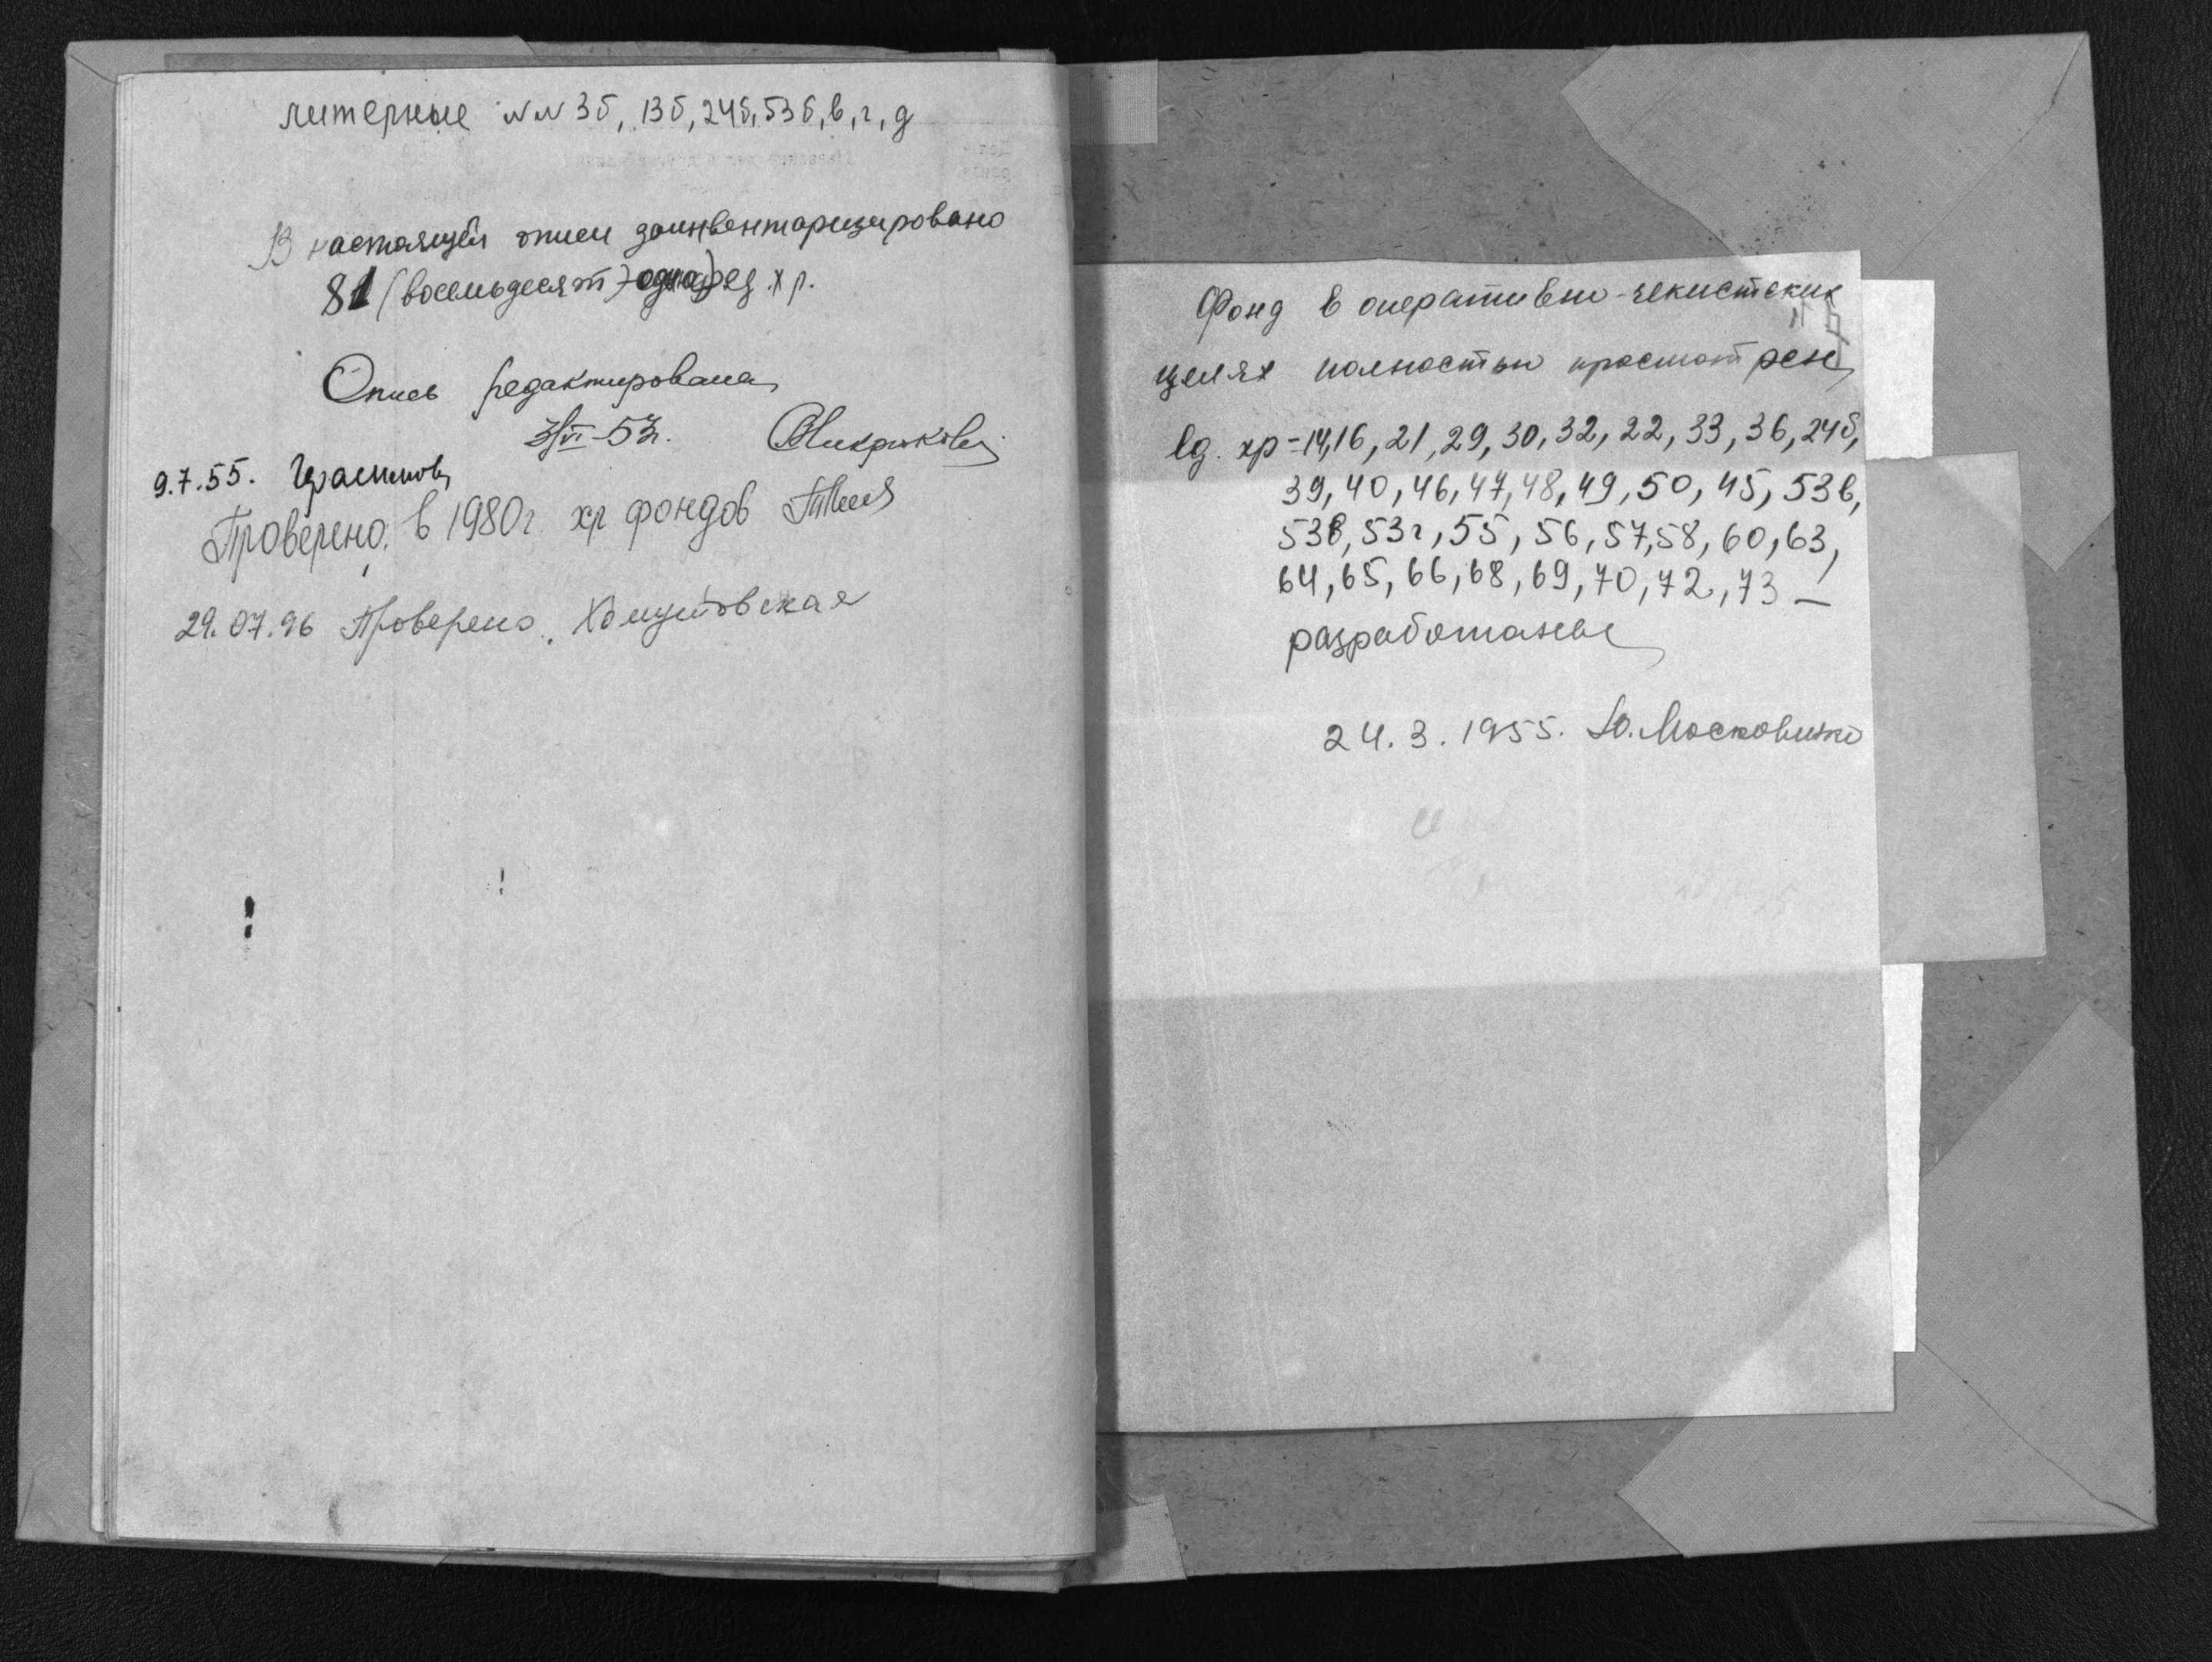 литерные №№ 3б, 13б, 24б, 53б, в, г, д
В настоящей описи заинвентаризировано
81 (восемьдесят) одна) ед. хр.
Опись редактирована
3/VI-53г.
9.7.55.
Проверено в 1980г хр фондов
29.07.96 Проверено. Хомутовская
Фонд в оперативно-чекистских
целях полностью просмотрен
Ед. хр - 14, 16, 21, 29, 30, 32, 22, 33, 36, 24б,
39, 40, 46, 47, 48, 49, 50, 45, 53в,
53в, 53г, 55, 56, 57, 58, 60, 63,
64, 65, 66, 68, 69, 70, 72, 73 —
разработаны
24.3.1955. Ю.